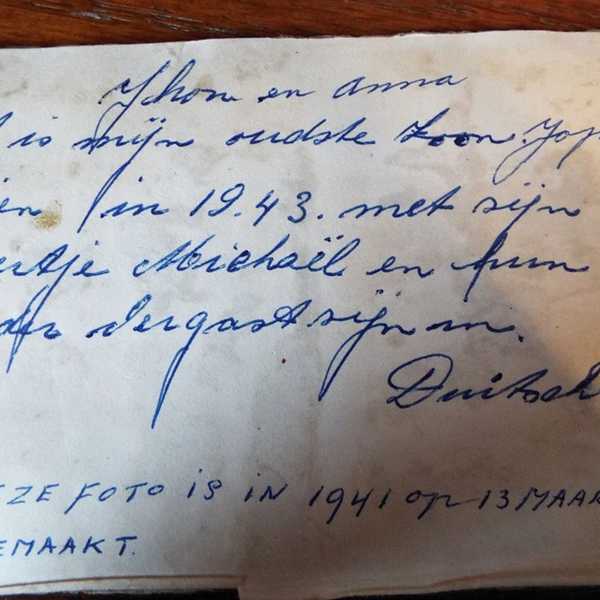 Jhon en anna
is mijn oudste zoon. Jop
in 19.43. met sijn
rtje Michaël en hun
der vergast sijn in.
Duitsch
ZE FOTO IS IN 1941 OP 13 MAAR
EMAAKT.